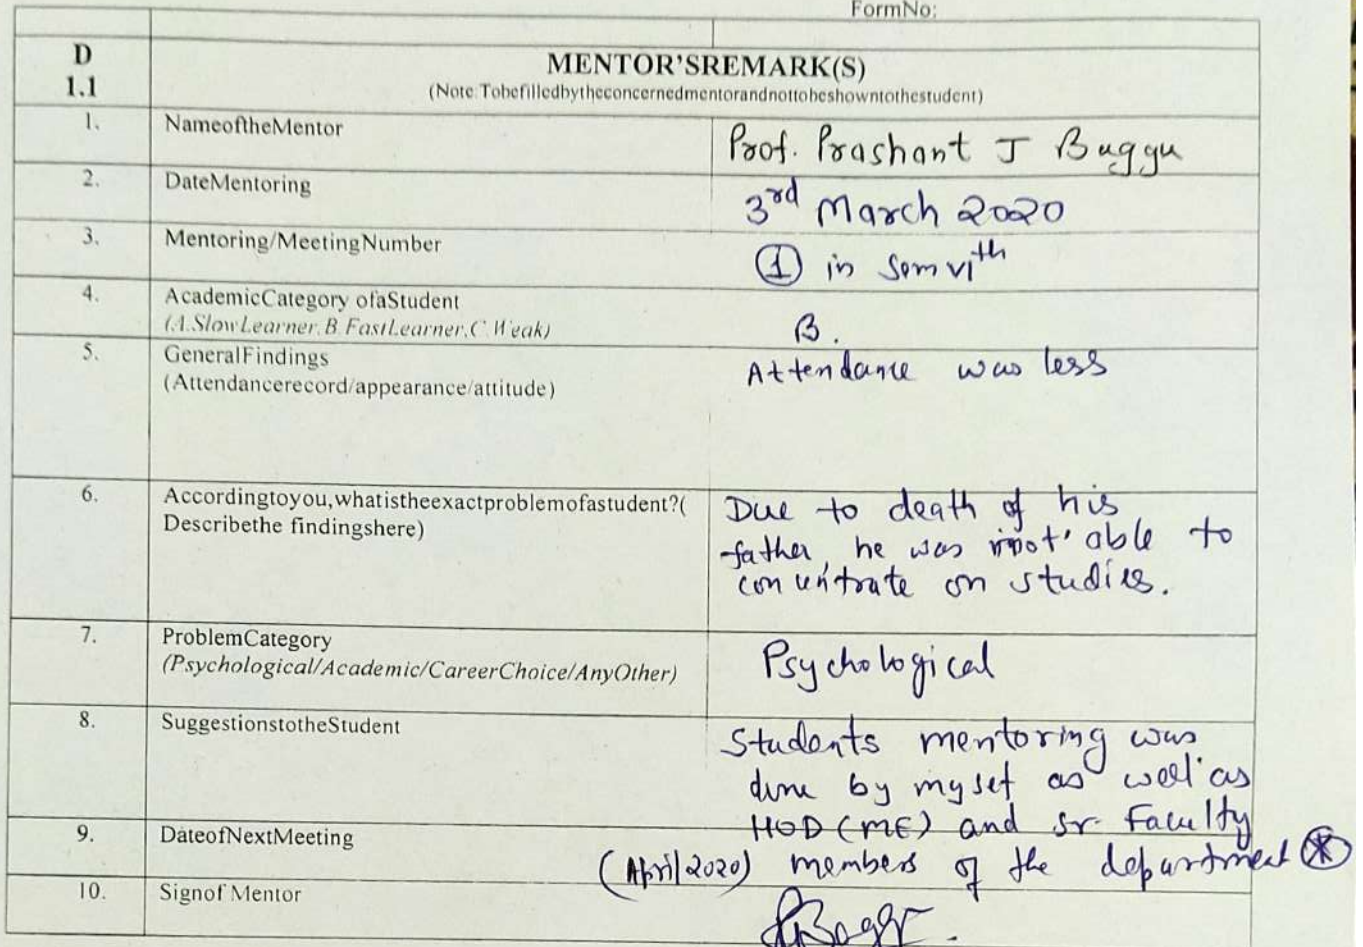 FormNo:
D
1.1
MENTOR'SREMARK(S)
(Note:Tobefilledbytheconcernedmentorandnottobeshowntothestudent)
1. NameoftheMentor Prof. Prashant J Buggu
2. DateMentoring 3rd March 2020
3. Mentoring/MeetingNumber 1 in Sem VIth
4. AcademicCategory ofaStudent
(A.SlowLearner,B.FastLearner,C.Weak) B.
5. GeneralFindings Attendance was less
(Attendancerecord/appearance/attitude)
6. Accordingtoyou,whatistheexactproblemofastudent?( Due to death of his
Describethe findingshere) father, he was not able to
concentrate on studies.
7. ProblemCategory
(Psychological/Academic/CareerChoice/AnyOther) Psychological
8. SuggestionstotheStudent Students mentoring was
done by myself as well as
HOD (ME) and Sr. Faculty
9. DateofNextMeeting (April 2020) members of the department *
10. Signof Mentor